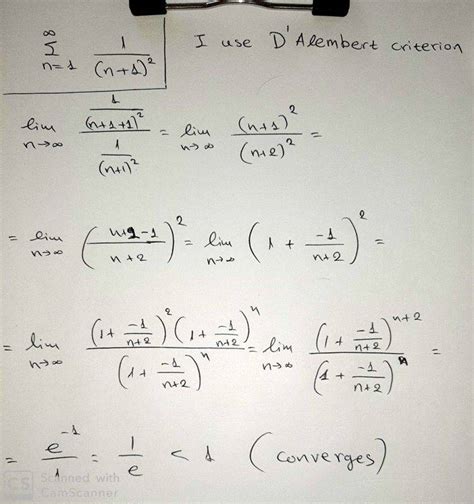 ∞ Σ n=1 1/(n+1)² I use D'Alembert criterion
lim n→∞ (1/(n+1+1)²)/(1/(n+1)²) = lim n→∞ (n+1)²/(n+2)² =
= lim n→∞ ((n+2-1)/(n+2))² = lim n→∞ (1 + -1/(n+2))² =
= lim n→∞ ((1 + -1/(n+2))² (1 + -1/(n+2))ⁿ)/(1 + -1/(n+2))ⁿ = lim n→∞ (1 + -1/(n+2))ⁿ⁺²/(1 + -1/(n+2))ⁿ =
= e⁻¹/1 = 1/e < 1 (converges)
CS Scanned with
CamScanner